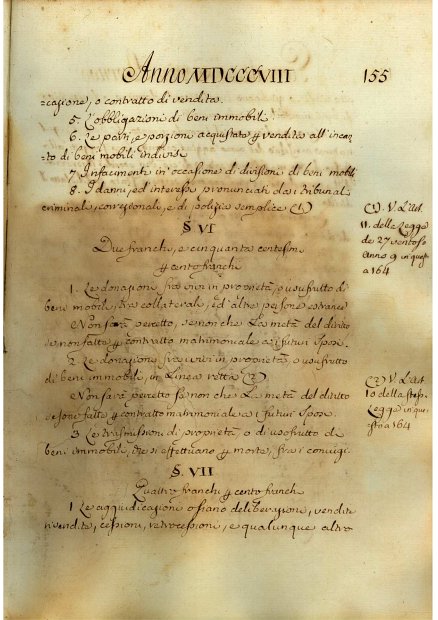 Anno MDCCCVIII 155
ecasione, o contratto di vendita.
5. L'obbligazioni di beni immobili
6. Le parti, e porzioni acquistate p vendite all'incan
to di beni mobili indivisi
7. I rifacimenti in occasione di divisioni di beni mobili
8. I danni, ed interessi pronunciati dai Tribunali
criminale, correzionale, e di polizia semplice (1)
(1) V. L'art
11. della Legge
de 27 ventoso
Anno 9 in questo
a 164
§. VI
Due franchi, e cinquanta centesimi
p cento franchi
1. Le donazioni fra vivi in proprietà, o usufrutto di
beni mobili, tra collaterali, ed altre persone estranee
Non sarà percetto, se non che La metà del diritto
se son fatte p contratto matrimoniale ai futuri Sposi.
2. Le donazioni fra vivi in proprietà, o usufrutto
di beni immobili, in Linea retta (2)
(2) V. L'art
10 della stessa
Legge in que
sto a 164
Non sarà percetto se non che La metà del diritto
se sono fatte p contratto matrimoniale a i futuri Sposi
3. Le trasmissioni di proprietà, o di usofrutto di
beni immobili, che si effettuano p morte, fra i coniugi.
§. VII
Quattro franchi p cento franchi
1. Le aggiudicazioni ossiano deliberazioni, vendite
rivendite, cessioni, retrocessioni, e qualunque altro